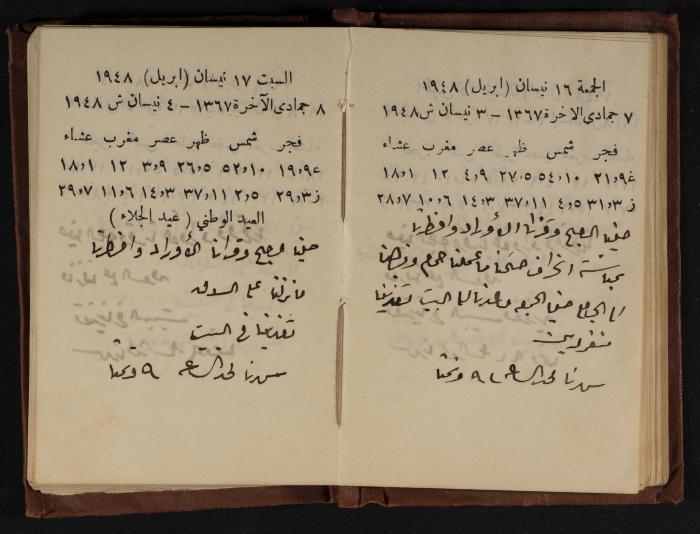 الجمعة ١٦ نيسان (ابريل) ١٩٤٨
٧ جمادى الآخرة ١٣٦٧ – ٣ نيسان ش ١٩٤٨
فجر شمس ظهر عصر مغرب عشاء
غ ٩٫٢١ ١٠٫٥٤ ٥٫٢٧ ٩٫٤ ١٢ ١٫١٨
ز ٣٫٣١ ٥٫٤ ١١٫٣٧ ٣٫١٤ ٦٫١٠ ٧٫٢٨
صلينا الصبح وقرأنا الأوراد وافطرنا
انحراف صحتنا ما عملنا حمام ونزلنا
الى الجامع صلينا الجمعة وعدنا الى البيت تغدينا
منفردين
سهرنا لحد الساعة ٩ ونمنا
السبت ١٧ نيسان (ابريل) ١٩٤٨
٨ جمادى الآخرة ١٣٦٧ – ٤ نيسان ش ١٩٤٨
فجر شمس ظهر عصر مغرب عشاء
غ ٩٫١٩ ١٠٫٥٢ ٥٫٢٦ ٩٫٣ ١٢ ١٫١٨
ز ٣٫٢٩ ٥٫٢ ١١٫٣٧ ٣٫١٤ ٦٫١١ ٧٫٢٩
العيد الوطني (عيد الجلاء)
صلينا الصبح وقرأنا الأوراد وافطرنا
ما نزلنا على السوق
تغدينا في البيت
سهرنا لحد الساعة ٩ ونمنا